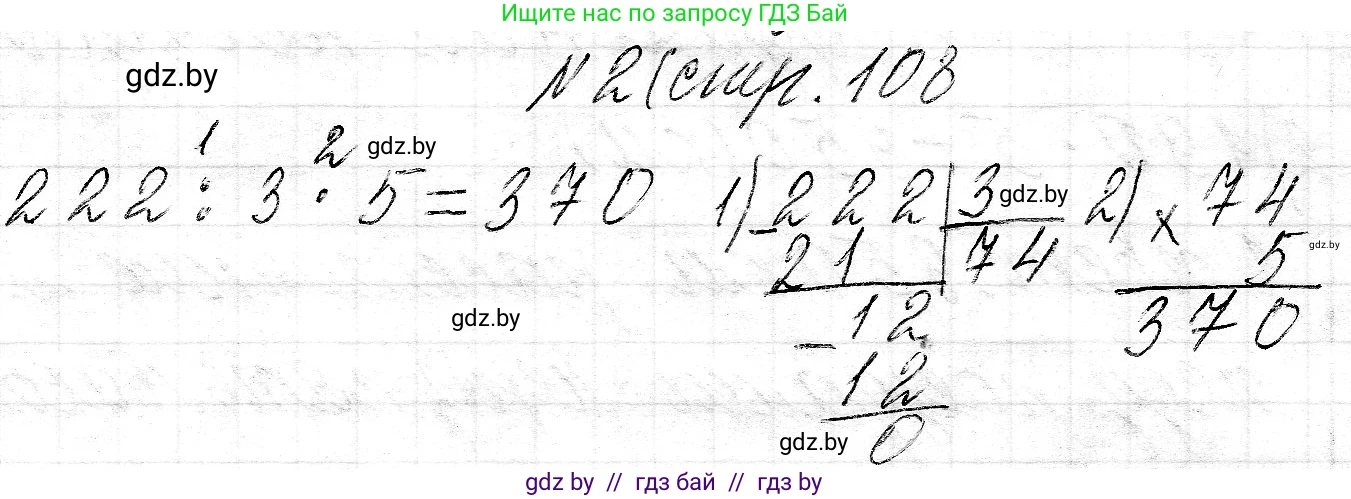 Ищите нас по запросу ГДЗ Бай
N2(стр. 108
gdz.by
1 2 gdz.by
222 : 3 · 5 = 370 1) 222 3 gdz.by 2) × 74
- 21 74 5 gdz.by
gdz.by - 12 370
12
gdz.by 0
gdz by // гдз бай // гдз by